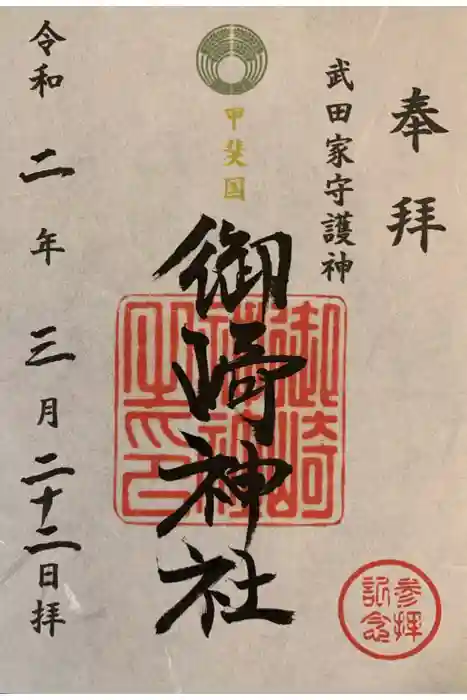 奉拝
武田家守護神
甲斐国
御崎神社
御崎神社之印
参拝記念
令和二年三月二十二日拝